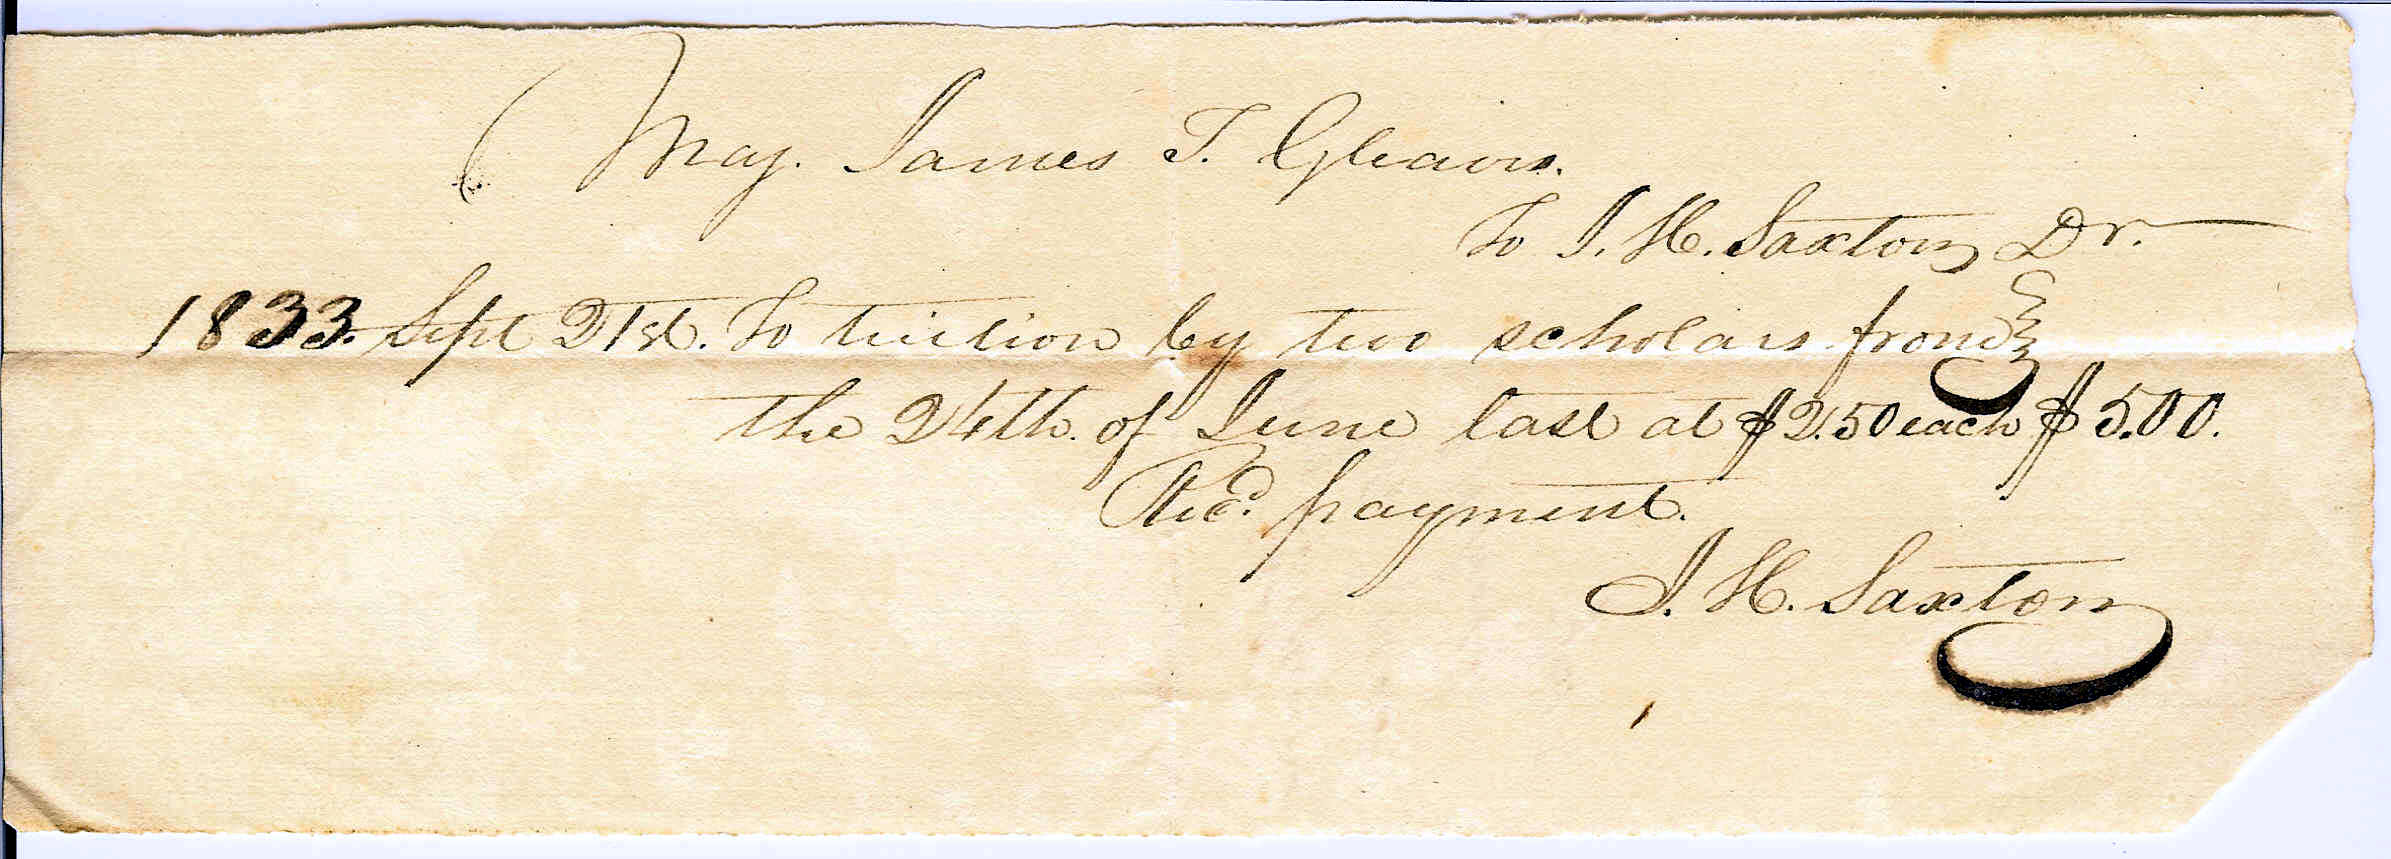 Maj. James T. Gleaves.
To J. H. Saxton Dr.
1833. Sept 21st. To tuition by two scholars from
the 24th. of June last at $2.50 each $5.00.
Recd. payment.
J. H. Saxton